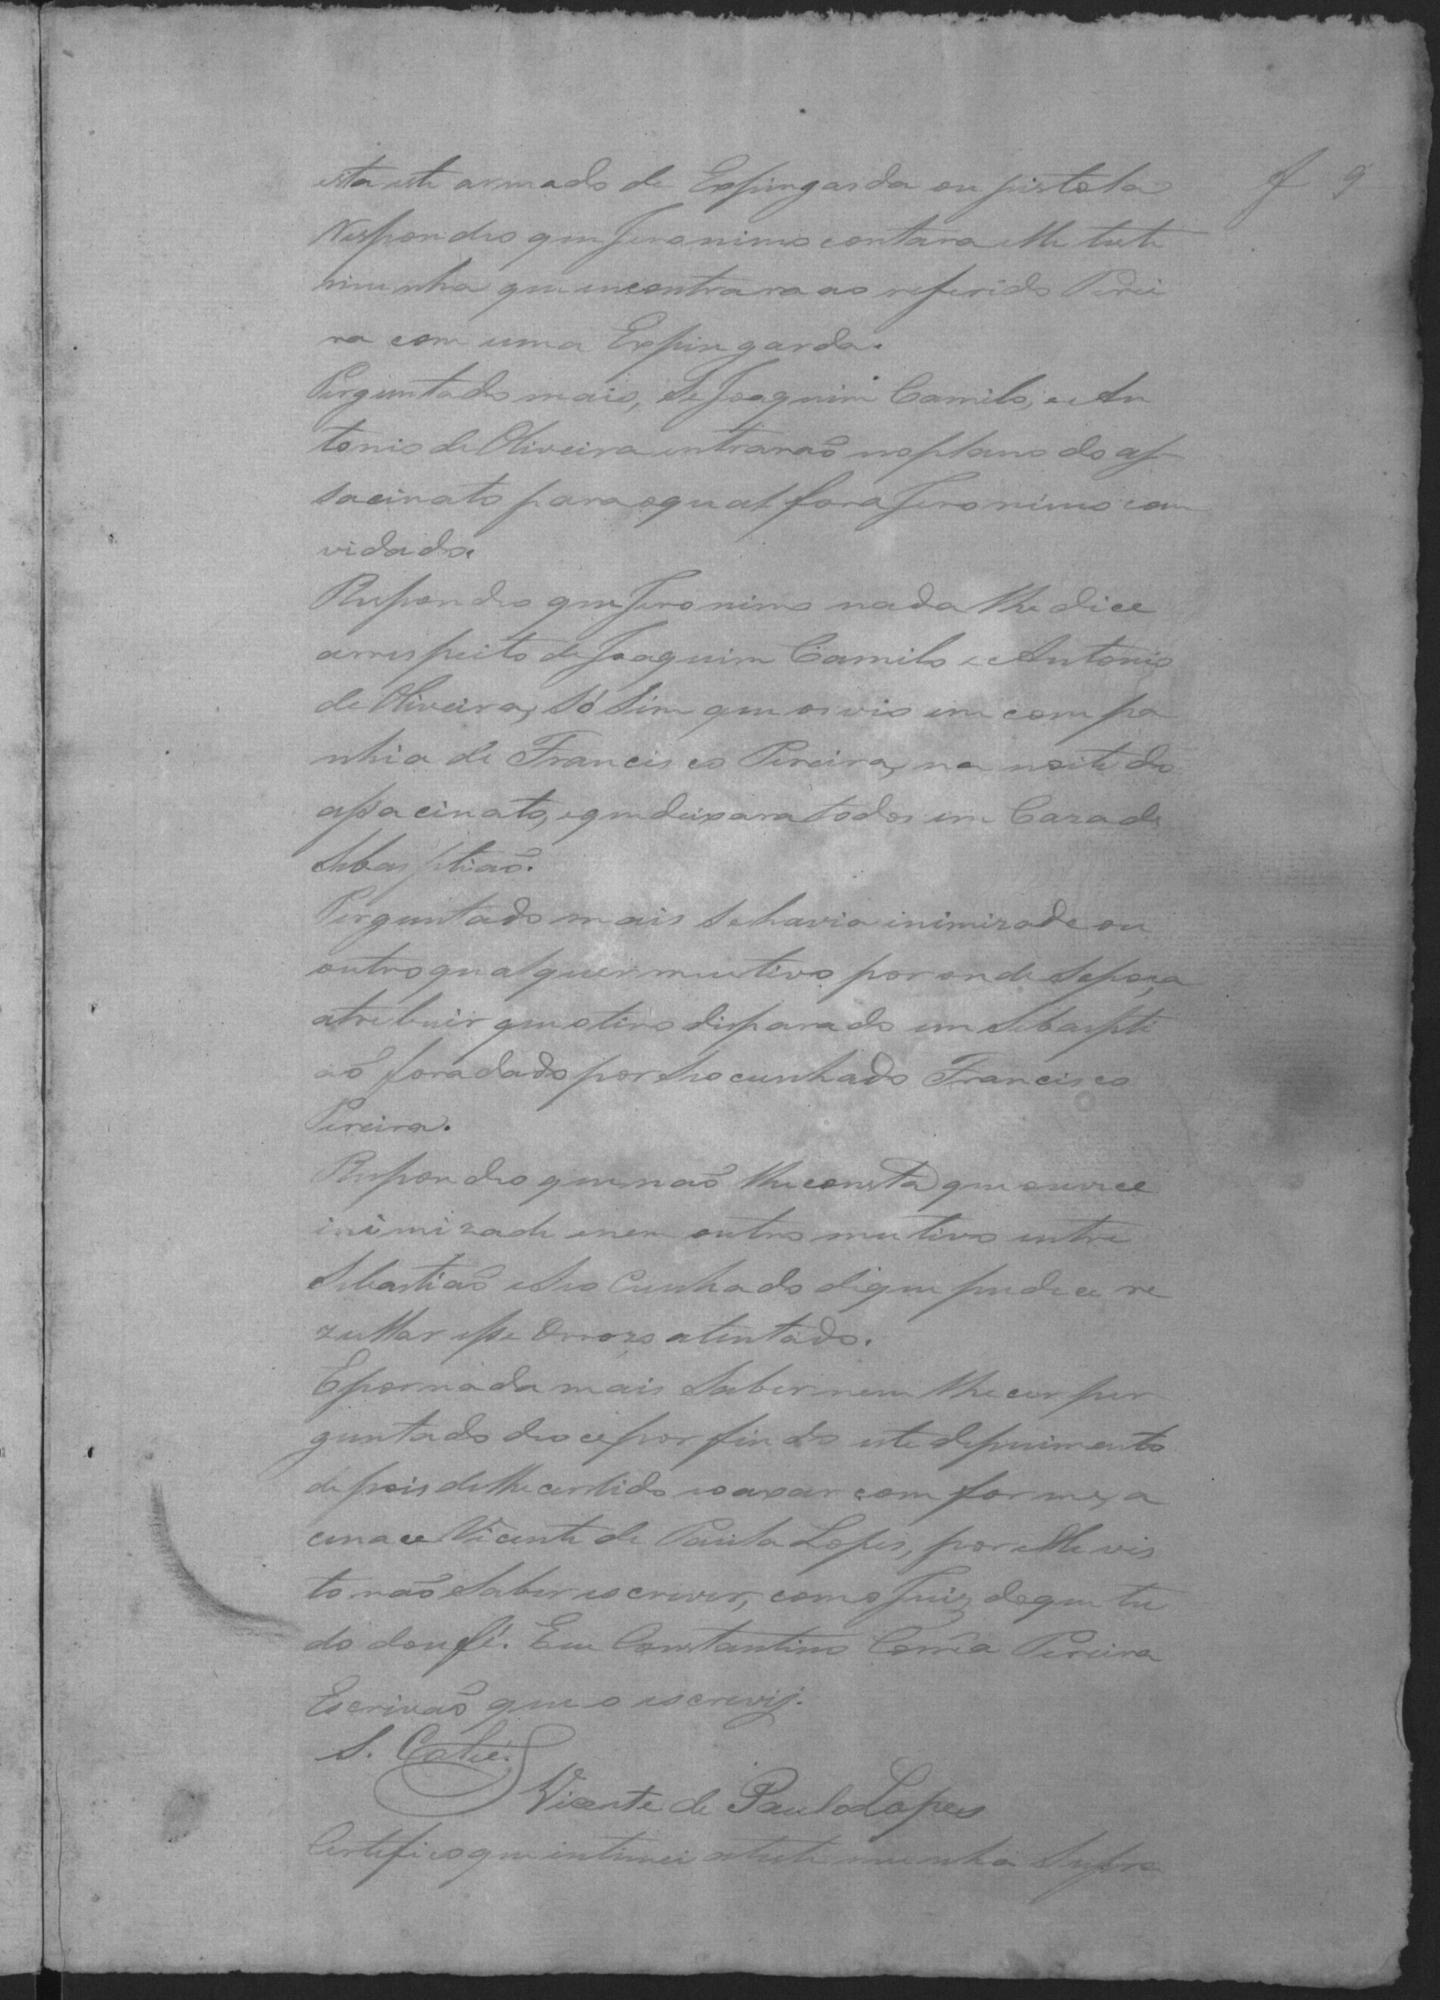 f 9
esta este armado de Espingarda ou pistola
Respondeo que Jeronimo contara elle teste
munha que encontrara ao referido Perei
ra com uma Espingarda.
Perguntado mais, se Joaquim Camilo, e An
tonio de Oliveira entrarão no plano do as
sacinato para o qual fora Jeronimo con
vidado.
Respondeo que Jeronimo nada lhe dice
arrespeito de Joaquim Camilo e Antonio
de Oliveira, só sim que os vio em compa
nhia de Francisco Pereira, na noite do
assacinato, e que deixara todos em Caza de
Sebasptião.
Perguntado mais se havia inimizade ou
outro qualquer mutivo por onde se poça
atrebuir que o tiro disparado em Sebaspti
ão fora dado por seo cunhado Francisco
Pereira.
Respondeo que não lhe consta que ouvece
inimizade e nem outro mutivo entre
Sebastião e seo Cunhado di que pudece re
zultar esse Orrozo atentado.
E por nada mais saber nem lhe cer per
guntado deo ce por findo este depuimento
depois de lhe cer lido e o axar comforme, a
cina ce Vicente de Paula Lopes, por elle vis
to não saber escrever, com o Juiz do que tu
do dou fé. Eu Constantino Corrêa Pereira
Escrivão que o escrevij.
S. Calié.
Vicente de Paulo Lopes
Certefico que intimei a teste munha supra